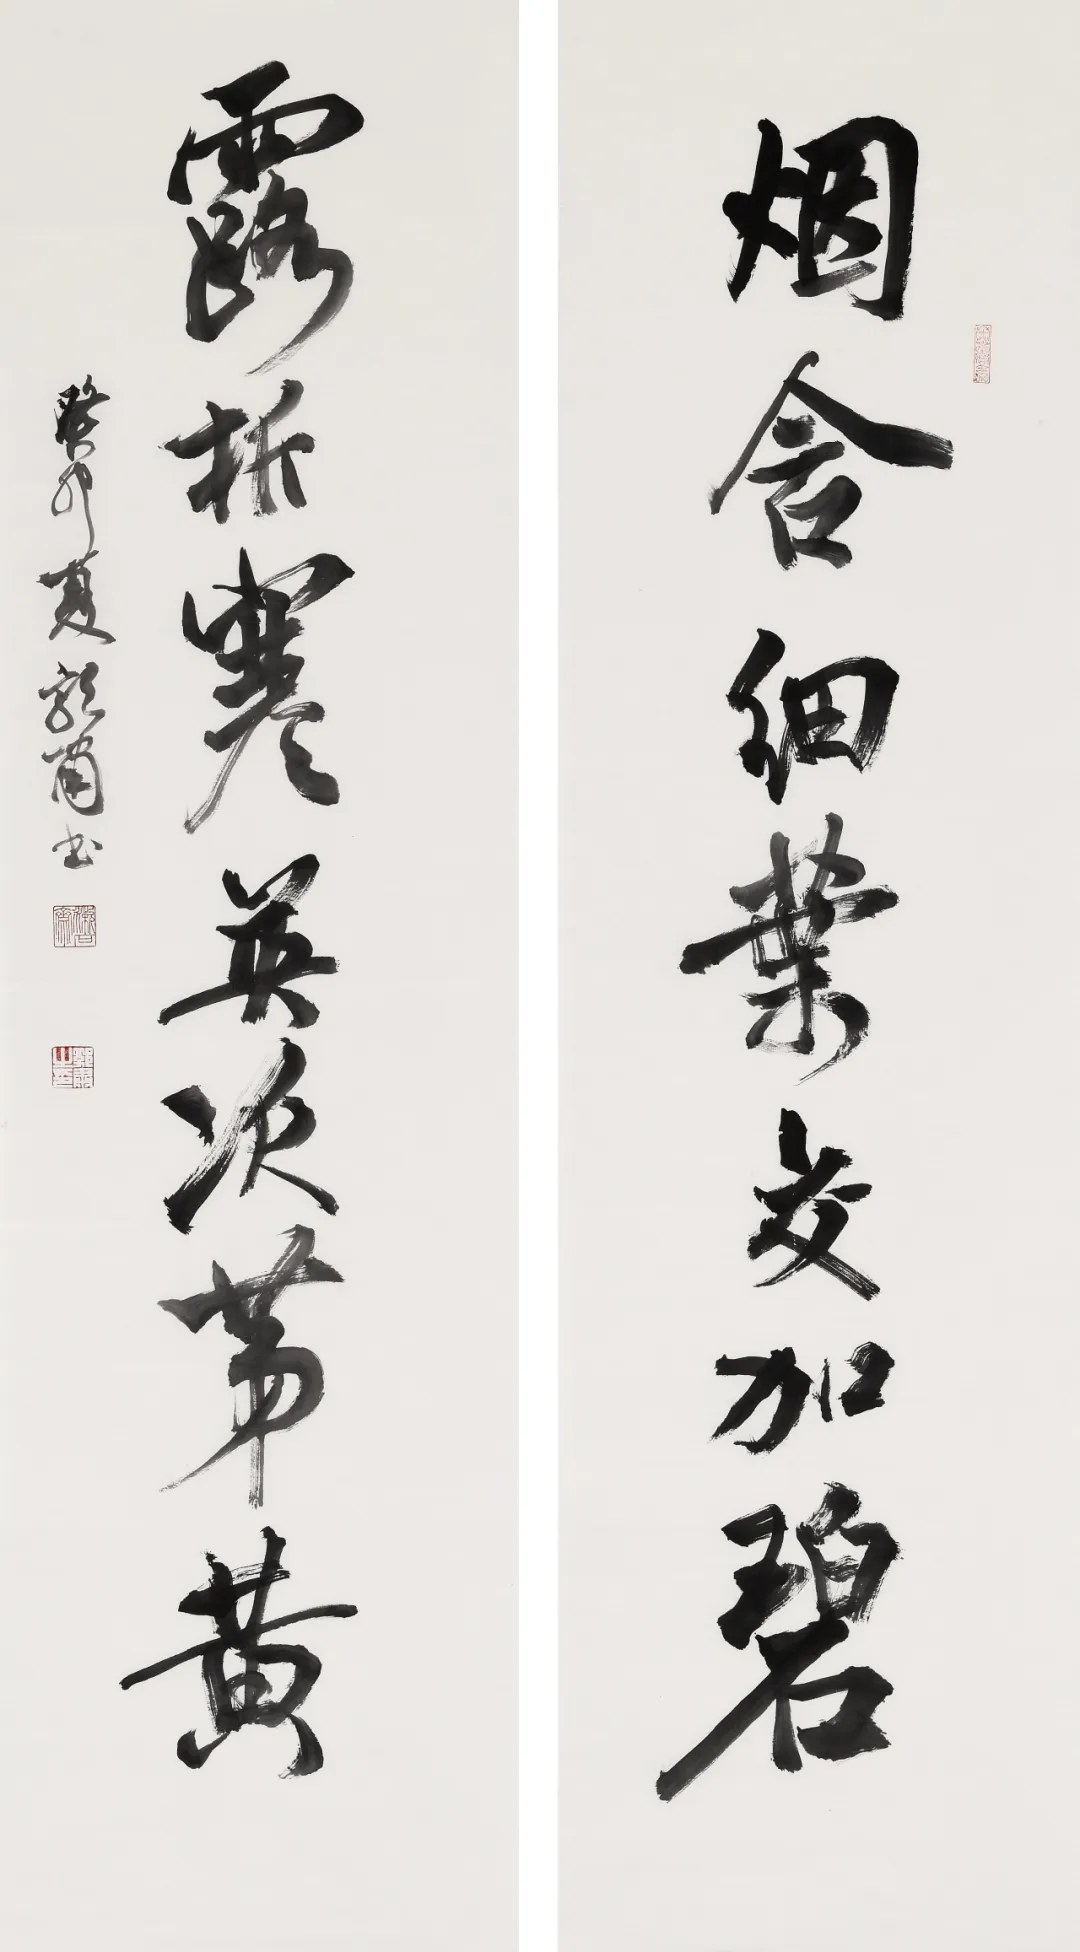 烟含细叶交加碧
露拆寒英次第黄
癸卯夏 书